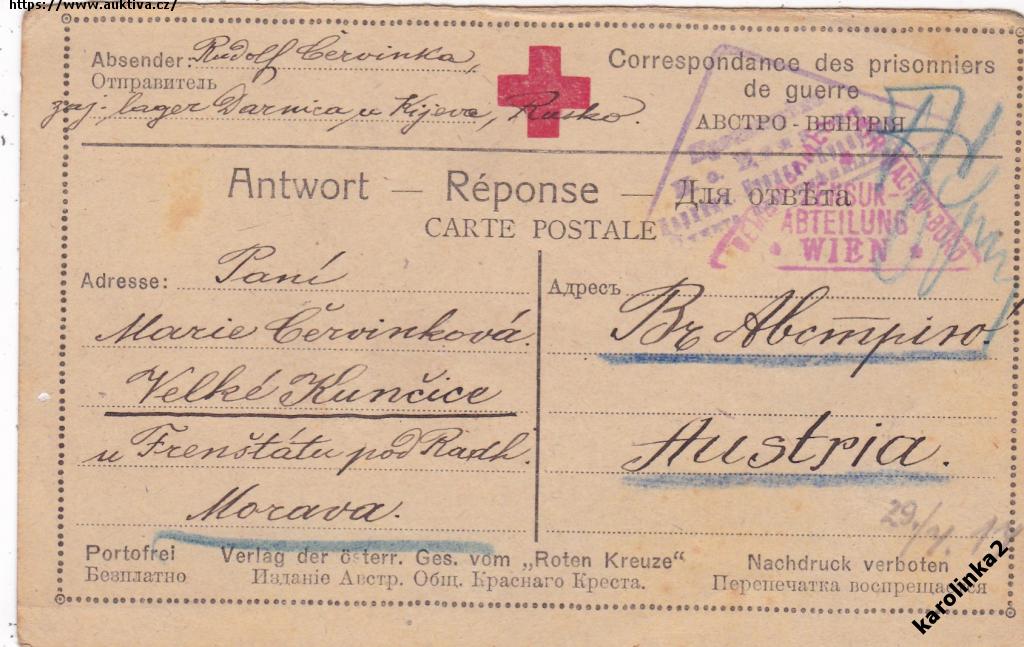 https://www.auktiva.cz/
Absender: Rudolf Červinka,
Отправитель
zaj. lager Darnica u Kijeva, Rusko.
Correspondance des prisonniers
de guerre
АВСТРО - ВЕНГРІЯ
Antwort — Réponse — Для отвѣта
CARTE POSTALE
ZENSUR-
ABTEILUNG
* WIEN *
Adresse: Paní
Marie Červinková.
Velké Kunčice
u Frenštátu pod Radh.
Morava.
Адресъ
Въ Австрію.
Austria.
29.
Portofrei Verlag der österr. Ges. vom „Roten Kreuze" Nachdruck verboten
Безплатно Изданіе Австр. Общ. Краснаго Креста. Перепечатка воспрещается
karolinka2